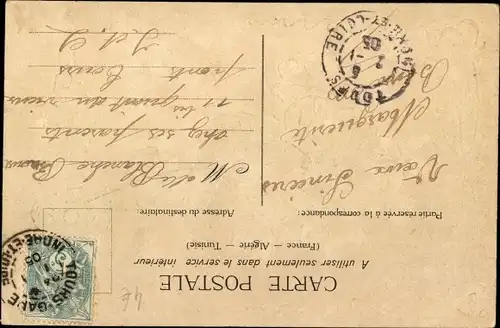 CARTE POSTALE
A utiliser seulement dans le service intérieur
(France — Algérie — Tunisie)
Partie réservée à la correspondance.
Adresse du destinataire.
Vœux Sincères
Marguerite
M elle Blanche
chez ses parents
11 bis quart du vieux
ponts Tours
I. et L.
TOURS
INDRE-ET-LOIRE
05
TOURS-GARE
INDRE-ET-LOIRE
05
4€